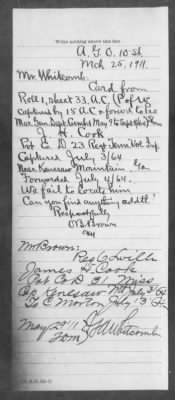 Write nothing above this line.
A.G.O. 10 St.
Mch 25, 1911.
Mr. Whitcomb.
Card from
Roll 1, sheet 33. A.C. (P of W
Captured by 15 A.C. & found to Pro
Mar. Genl Dept Cumbld May 7 to Sept
J. H. Cook
Pvt Co D 23 Regt Tenn Vol. Inf.
Captured July 3/64
Near Kenesaw Mountain, Ga
Forwarded July 4/64.
We fail to locate him
Can you find anything addtl?
Respectfully
O B Brown
Mr Brown:
James H Cook
Pvt Co D 31 Miss
Cap Kenesaw Mt July 3/64
To C Morton July 13 64
May 29 11
Whitcomb